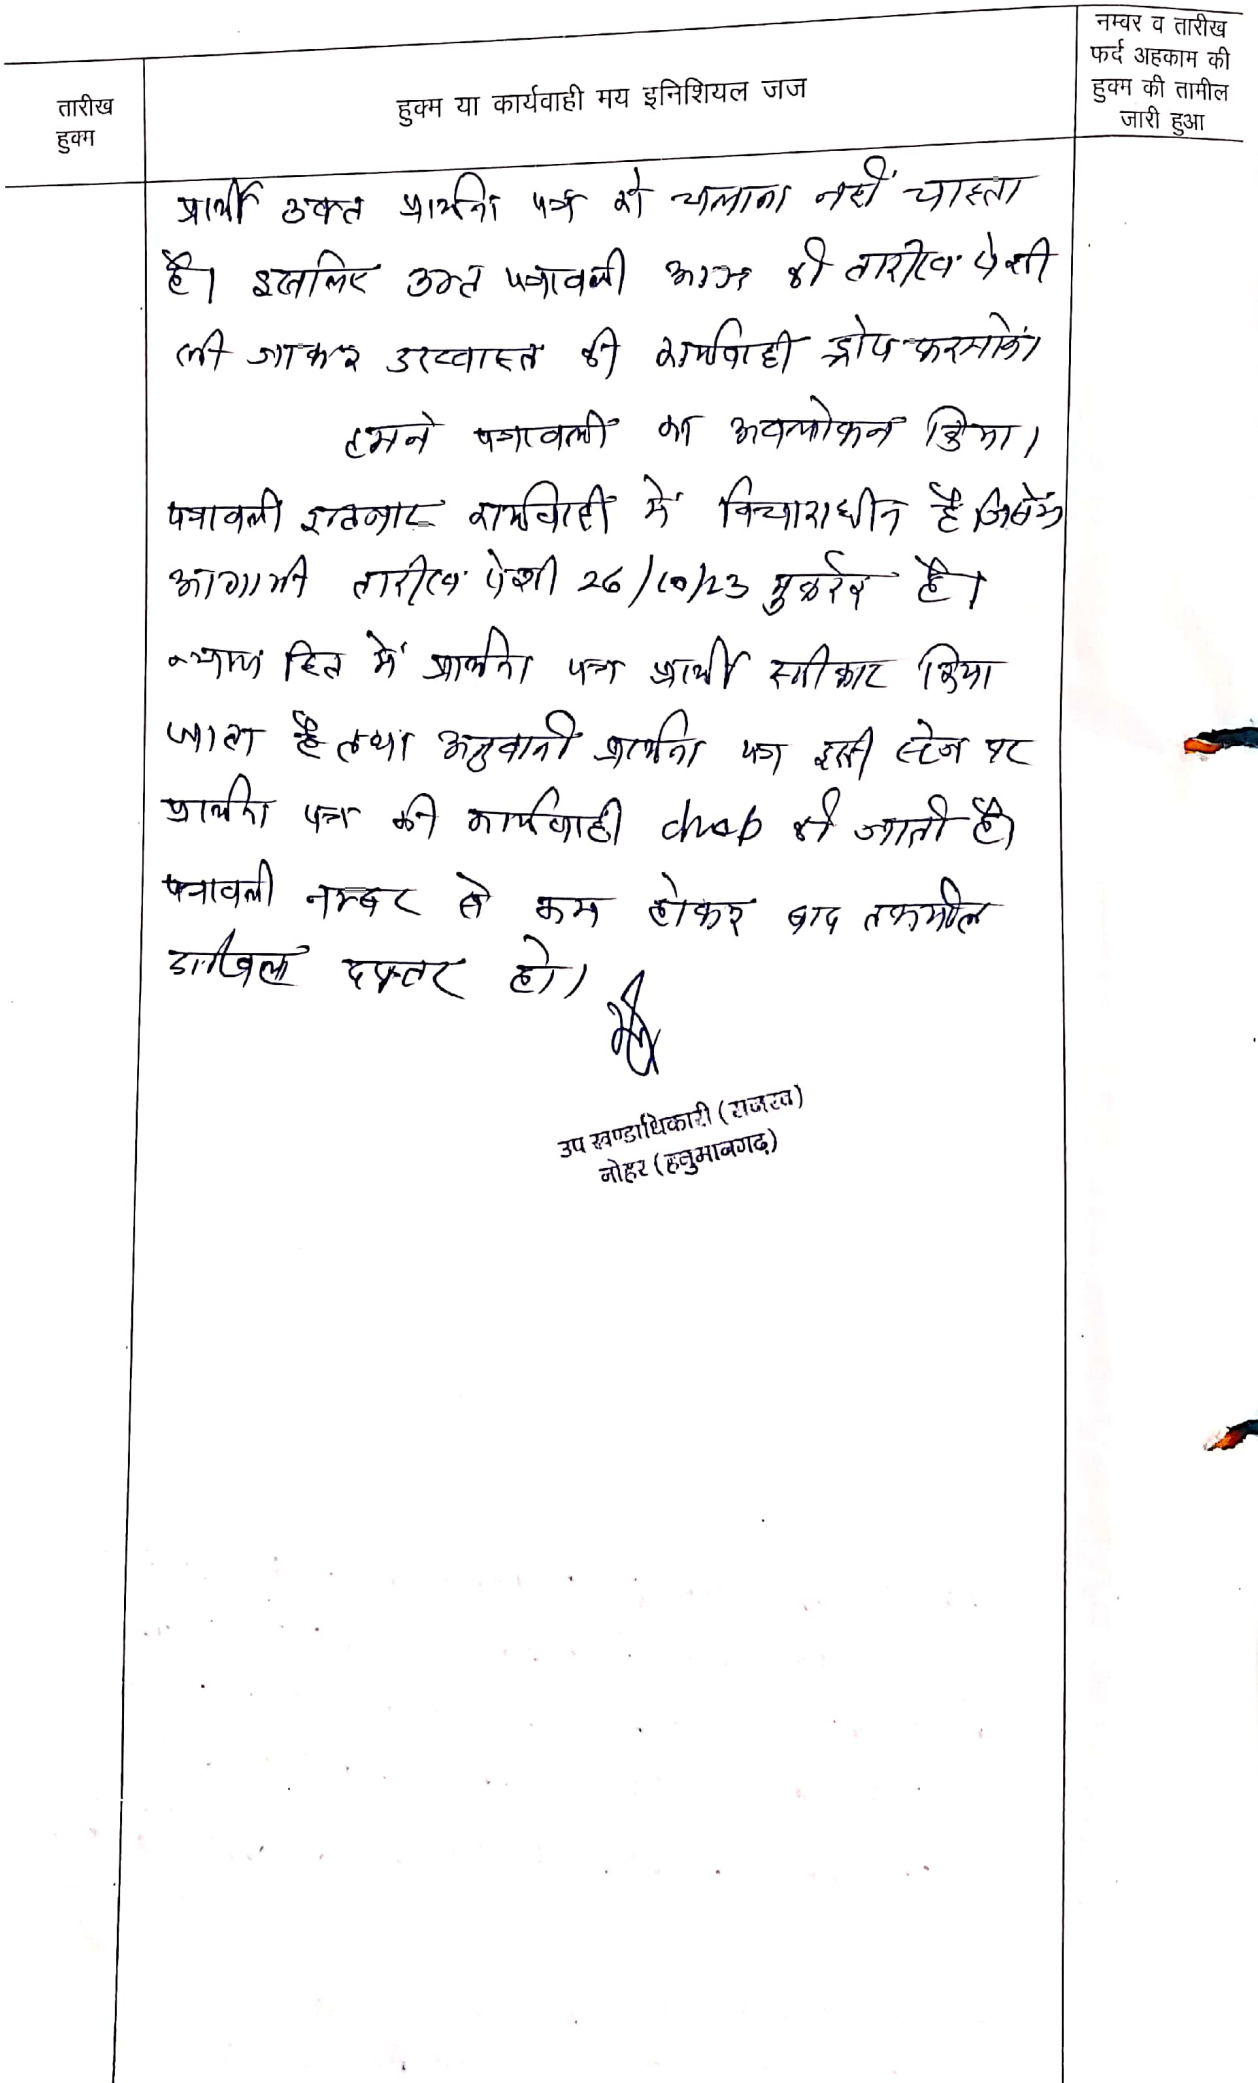 तारीख
हुक्म
हुक्म या कार्यवाही मय इनिशियल जज
नम्बर व तारीख
फर्द अहकाम की
हुक्म की तामील
जारी हुआ
प्रार्थी उक्त प्रार्थना पत्र को चलाना नहीं चाहता
है। इसलिए उक्त पत्रावली आज की तारीख पेशी
ली जाकर दरख्वास्त की कार्यवाही ड्रोप फरमावें।
हमने पत्रावली का अवलोकन किया।
पत्रावली इन्तजार कार्यवाही में विचाराधीन है जिसमें
आगामी तारीख पेशी 26/10/23 मुकर्रर है।
न्याय हित में प्रार्थना पत्र प्रार्थी स्वीकार किया
जाता है तथा प्रार्थना पत्र इसी स्टेज पर
प्रार्थना पत्र की कार्यवाही drop की जाती है।
पत्रावली नम्बर से कम होकर बाद तकमील
दाखिल दफ्तर हो।
उप खण्डाधिकारी (राजस्व)
नोहर (हनुमानगढ़)